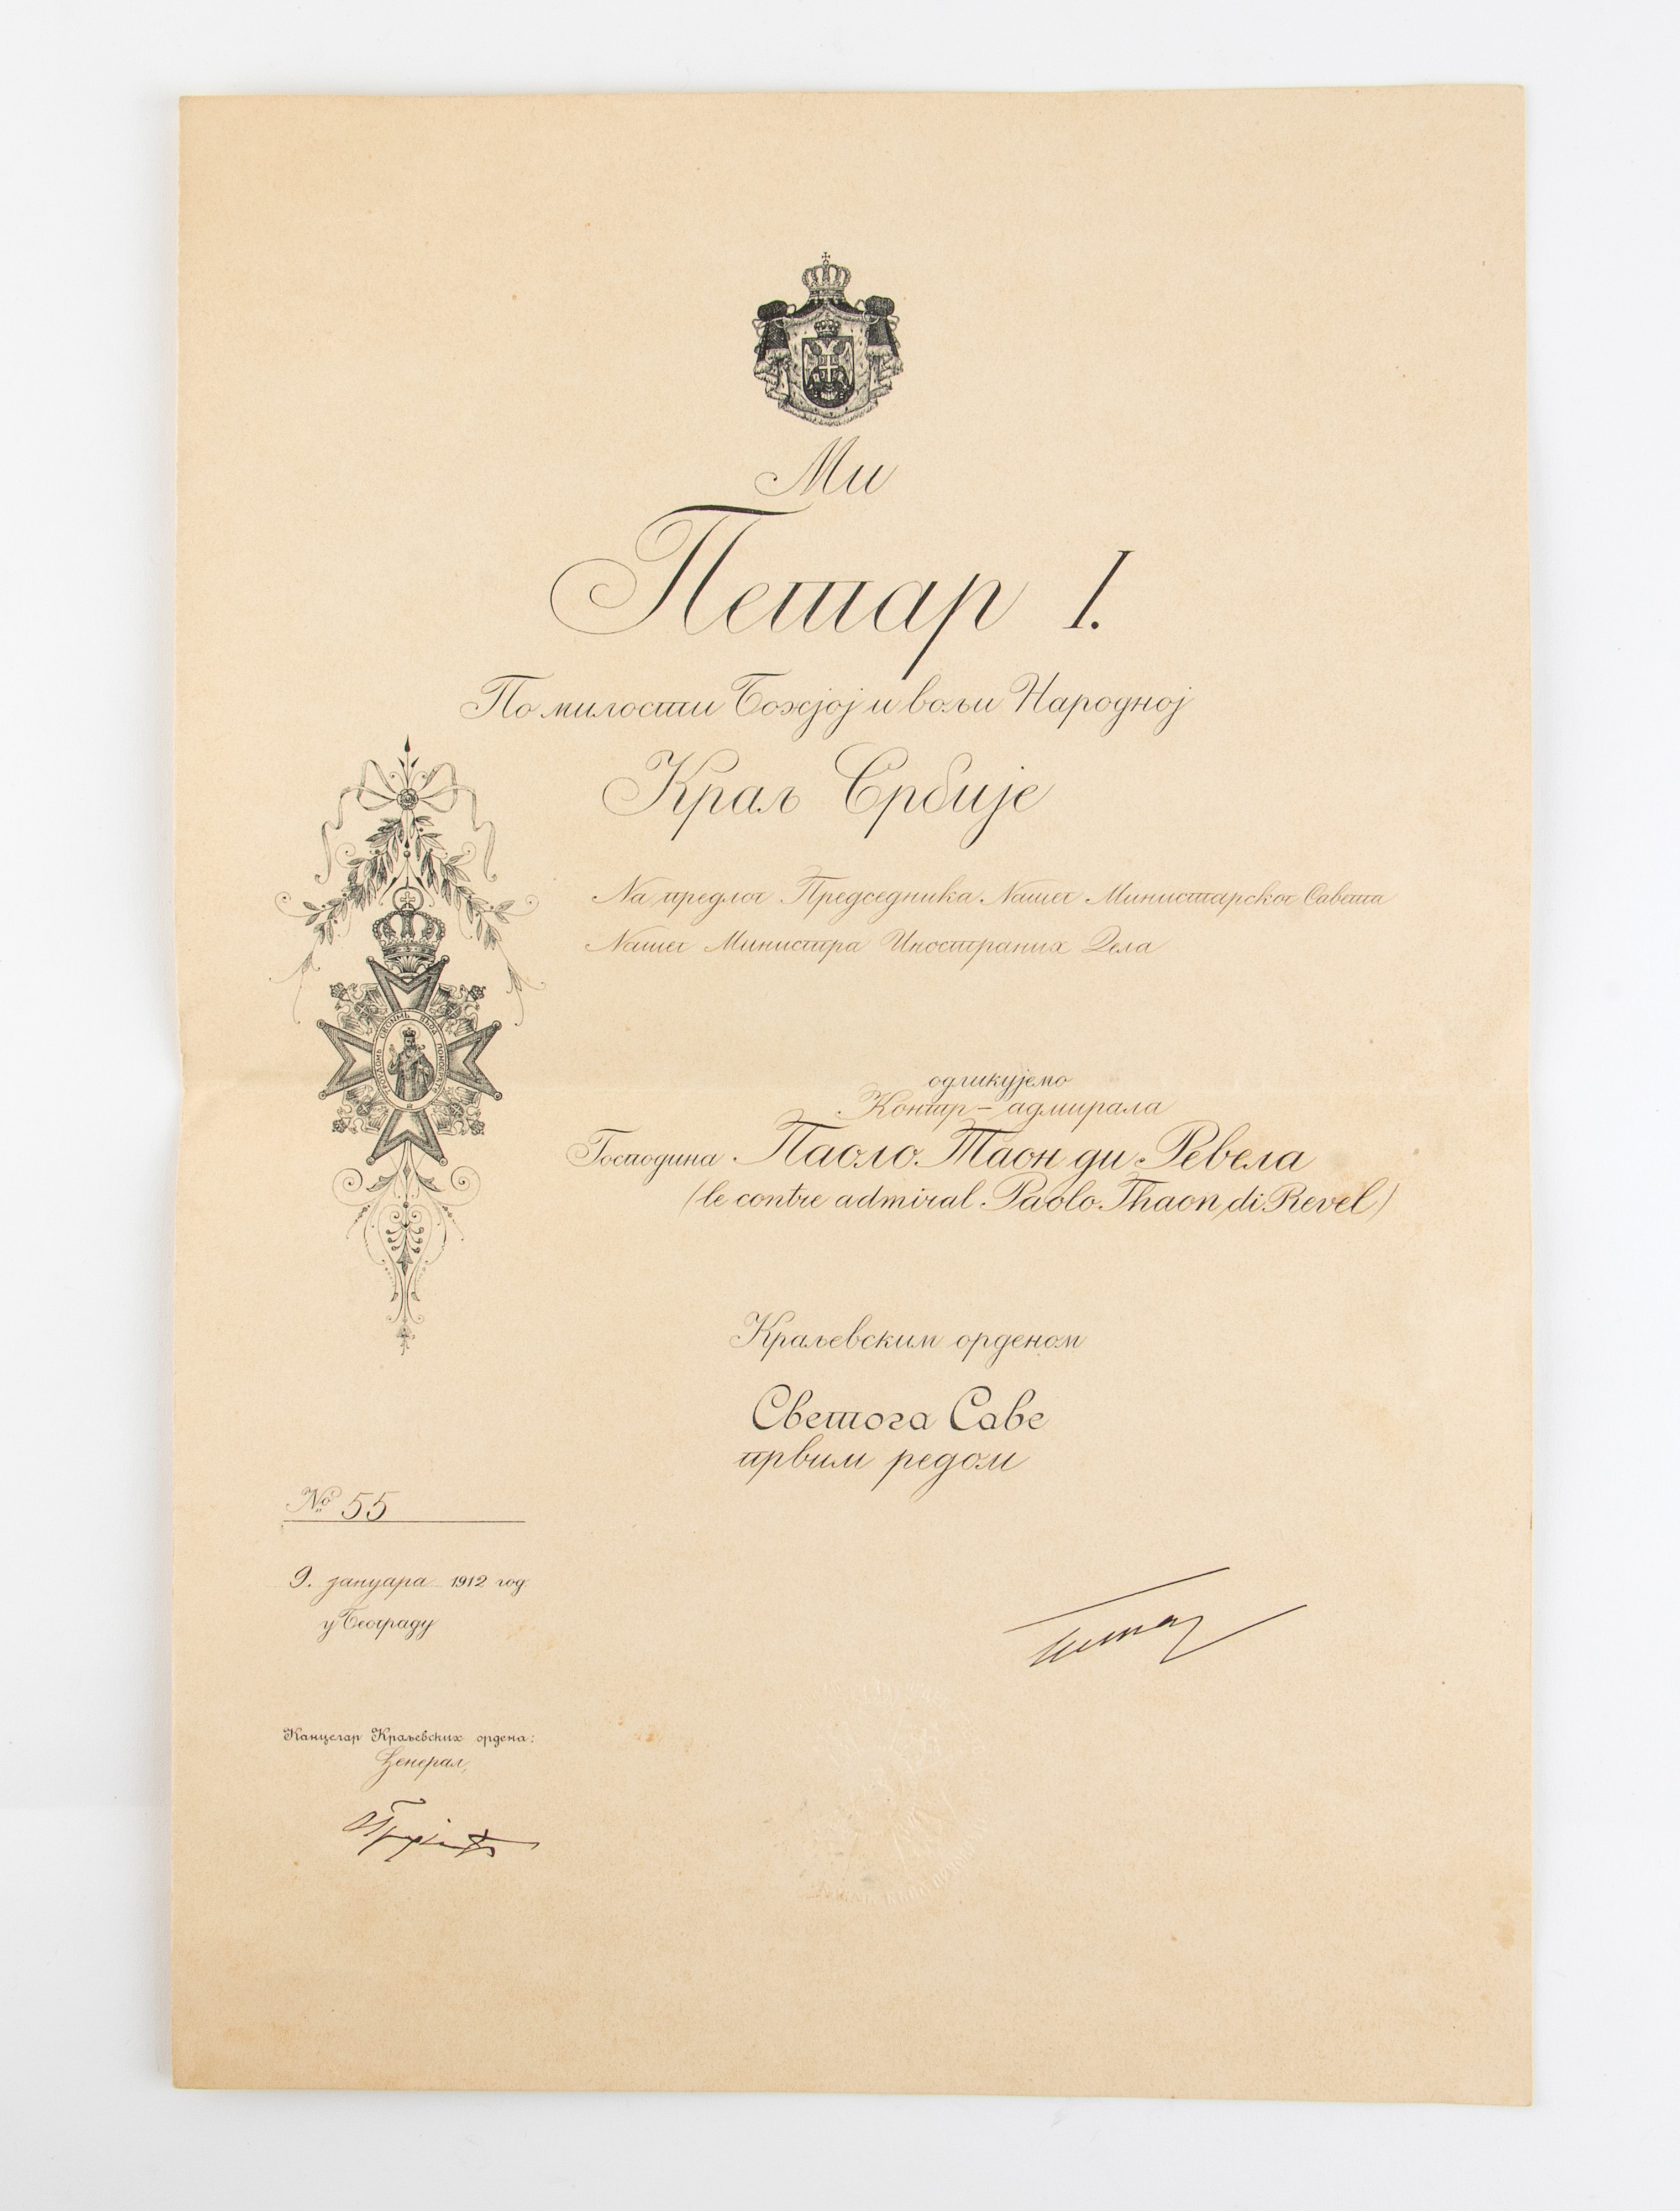 Ми
Петар I.
По милости Божјој и вољи Народној
Краљ Србије
На предлог Председника Нашег Министарског Савета
Нашег Министра Иностраних Дела
одликујемо
Контр-адмирала
Господина Паоло Таон ди Ревела
(le contre admiral Paolo Thaon di Revel)
Краљевским орденом
Светога Саве
првим редом
№ 55
9. јануара 1912 год.
у Београду
Канцелар Краљевских ордена:
Ђенерал,